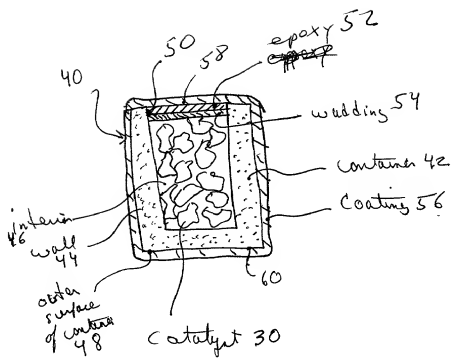 50
58
epoxy 52
40
wadding 54
container 42
Coating 56
interior
46
wall
44
60
outer
surface
of container
48
Catalyst 30